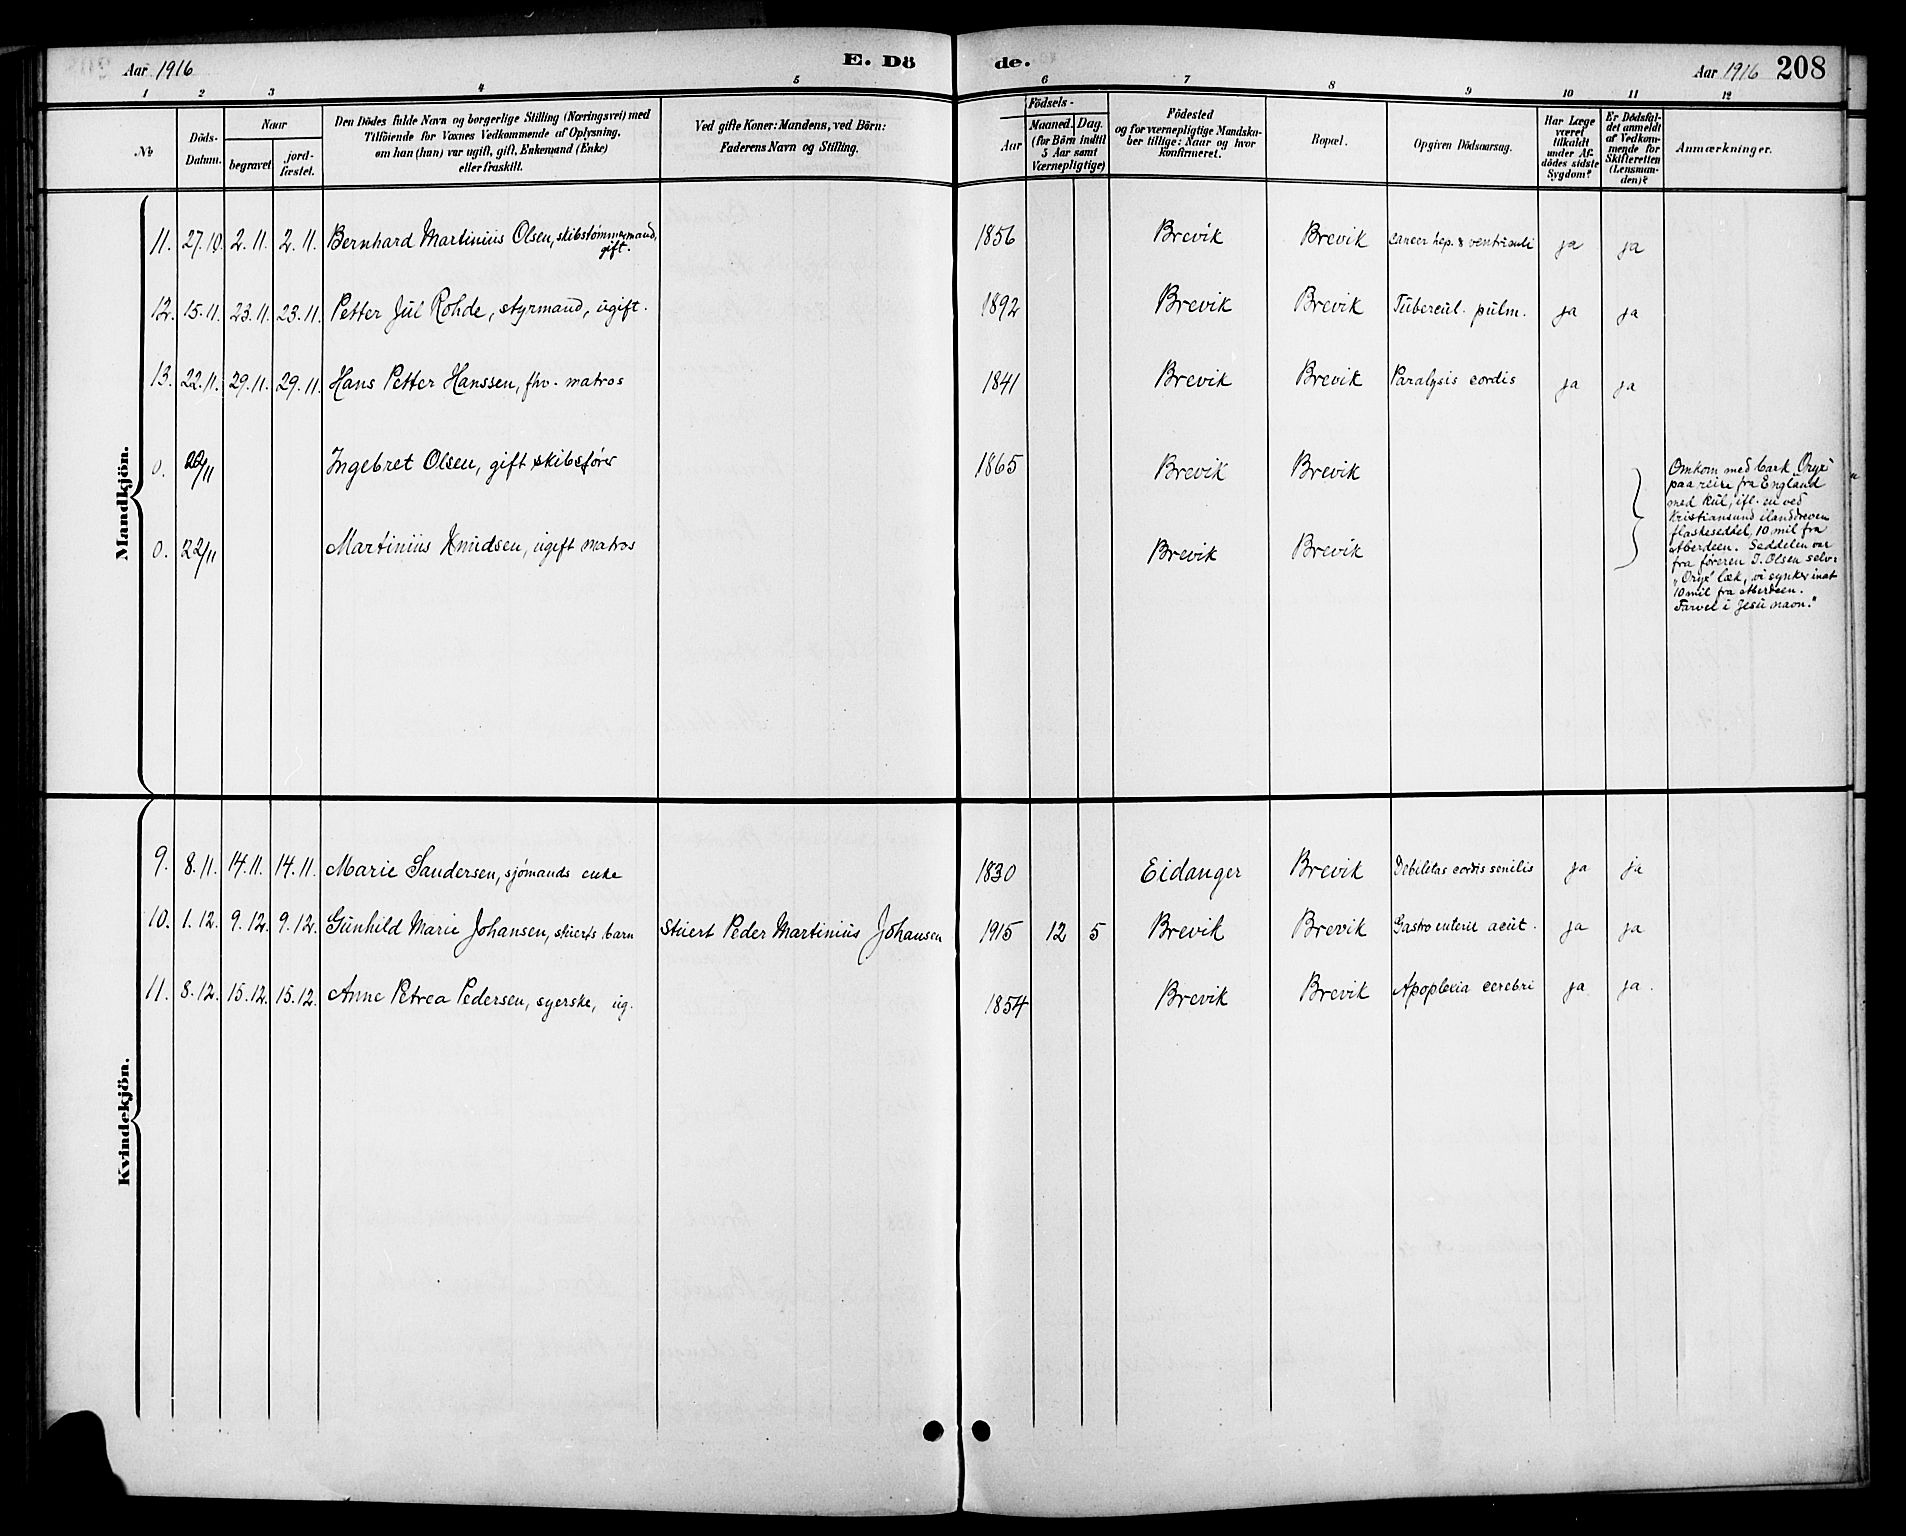 Aar 1916
E. Dö
de.
Aar 1916 208
1 2 3 4 5 6 7 8 9 10 11 12
No
Döds-
Datum.
Naar
begravet
jord-
fæstet.
Den Dödes fulde Navn og borgerlige Stilling (Næringsvei) med
Tilföiende for Voxnes Vedkommende af Oplysning,
om han (hun) var ugift, gift, Enkemand (Enke)
eller fraskilt.
Ved gifte Koner: Mandens, ved Börn:
Faderens Navn og Stilling.
Födsels-
Aar
Maaned. Dag.
(for Börn indtil
5 Aar samt
Værnepligtige)
Födested
og for værnepligtige Mandska-
ber tillige: Naar og hvor
konfirmeret.
Bopæl.
Opgiven Dödsaarsag.
Har Læge
været
tilkaldt
under Af-
dödes sidste
Sygdom?
Er Dödsfal-
det anmeldt
af Vedkom-
mende for
Skifteretten
(Lensman-
den)?
Anmærkninger.
Mandkjön.
11. 27.10. 2.11. 2.11. Bernhard Martinius Olsen, skibstømmermand, 1856 Brevik Brevik cancer hep. & ventriculi ja ja
gift.
12. 15.11. 23.11. 23.11. Petter Jul Rohde, styrmand, ugift. 1892 Brevik Brevik Tubercul. pulm. ja ja
13. 22.11. 29.11. 29.11. Hans Petter Hanssen, fhv. matros 1841 Brevik Brevik Paralysis cordis ja ja
0. 22/11 Ingebret Olsen, gift skibsfører 1865 Brevik Brevik
0. 22/11 Martinius Knudsen, ugift matros Brevik Brevik
Omkom med bark "Oryx"
paa reise fra England
med kul, ifl. en ved
Kristiansund ilanddreven
flaskeseddel, 10 mil fra
Aberdeen. Seddelen var
fra føreren I. Olsen selv:
"Oryx" læk, vi synker inat
10 mil fra Aberdeen.
Farvel i Jesu navn."
Kvindekjön.
9. 8.11. 14.11. 14.11. Marie Sandersen, sjømands enke 1830 Eidanger Brevik Debilitas cordis senilis ja ja
10. 1.12. 9.12. 9.12. Gunhild Marie Johansen, stuerts barn Stuert Peder Martinius Johansen 1915 12 5 Brevik Brevik Gastro enterit acut. ja ja
11. 8.12. 15.12. 15.12. Anne Petrea Pedersen, syerske, ug. 1854 Brevik Brevik Apoplexia cerebri ja ja.